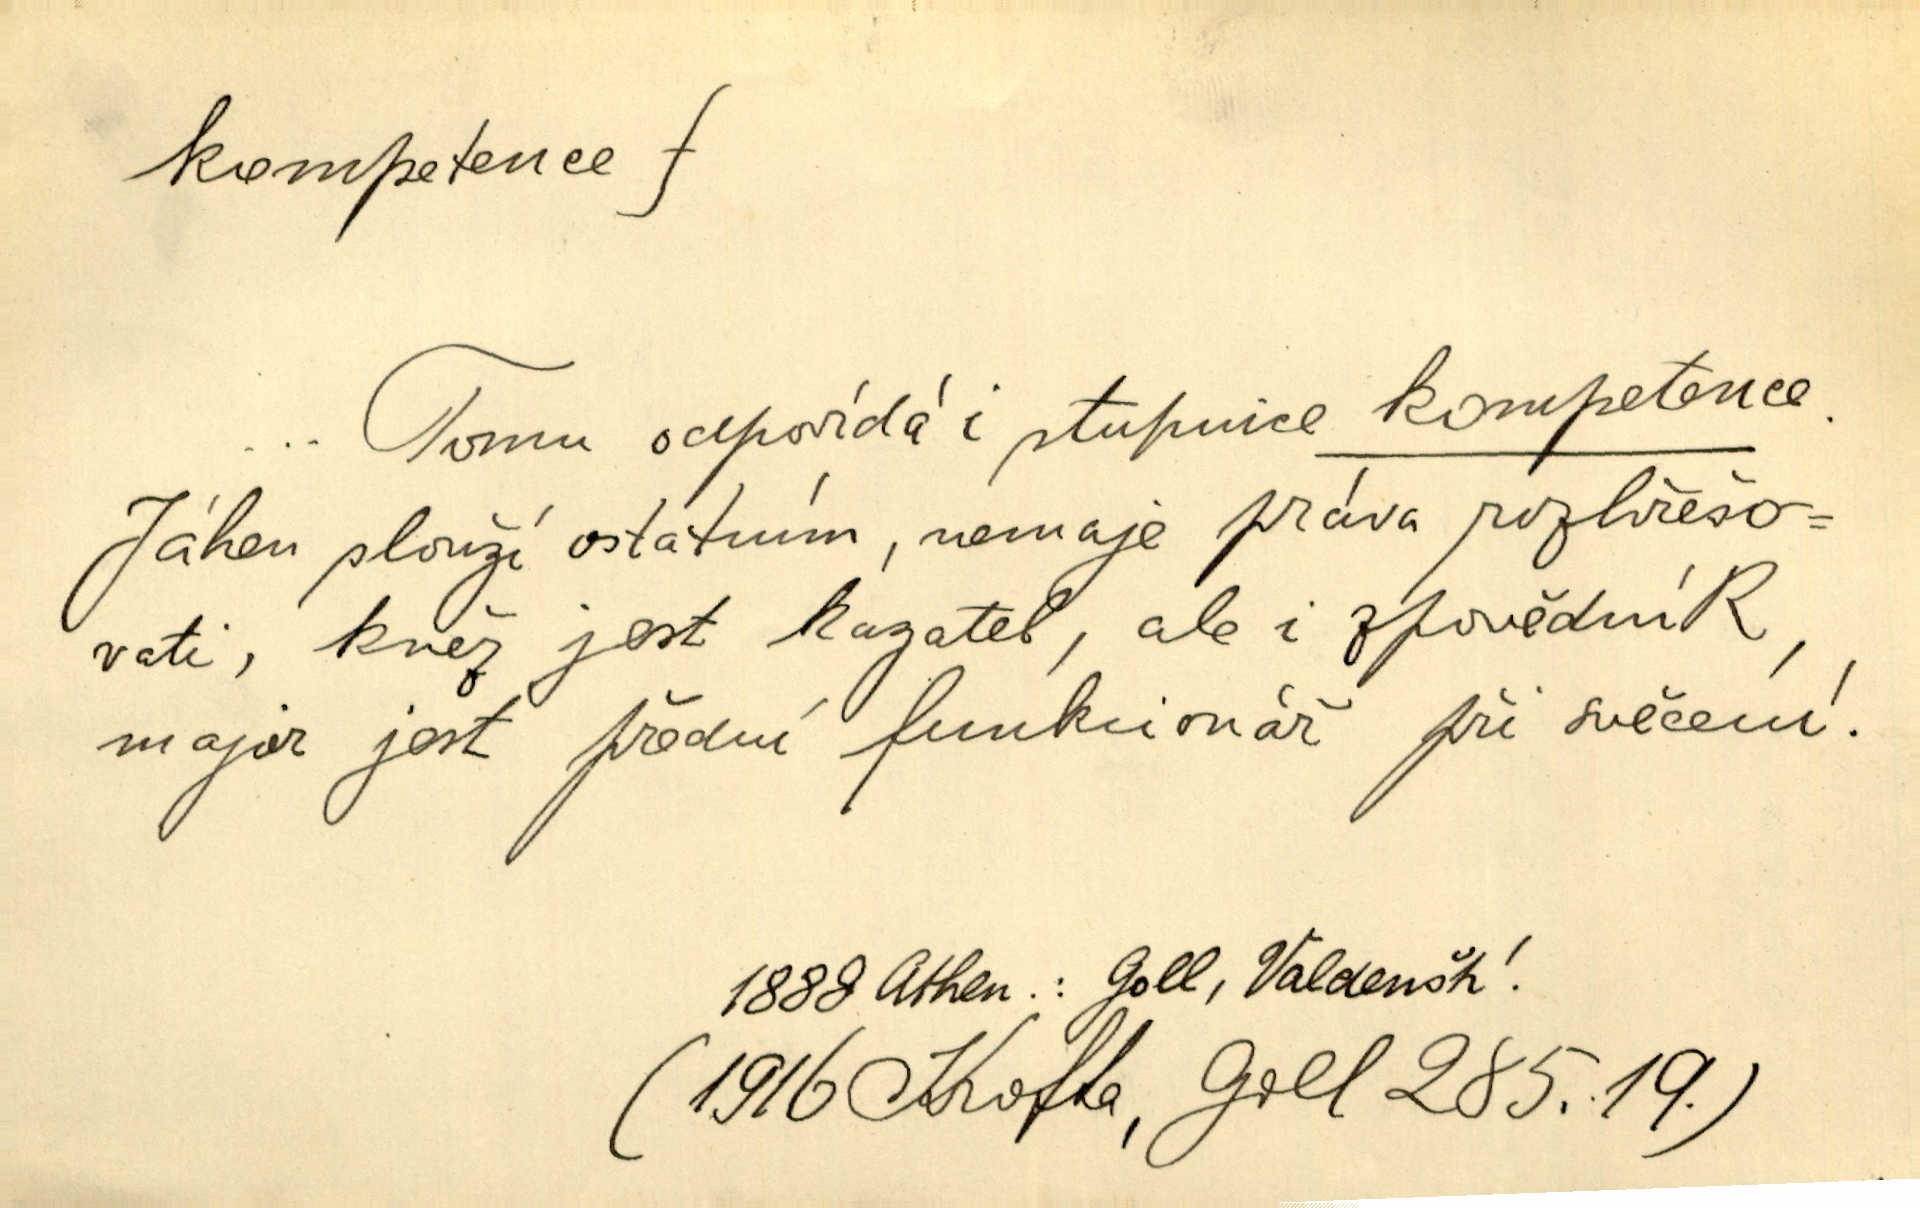 kompetence f
... Tomu odpovídá i stupnice kompetence.
Jáhen slouží ostatním, nemaje práva rozhřešo=
vati, kněz jest kazatel, ale i zpovědník,
major jest přední funkcionář při svěcení.
1888 Athen.: Goll, Valdenšt!
(1916 Krofta, Goll 285.. 19.)